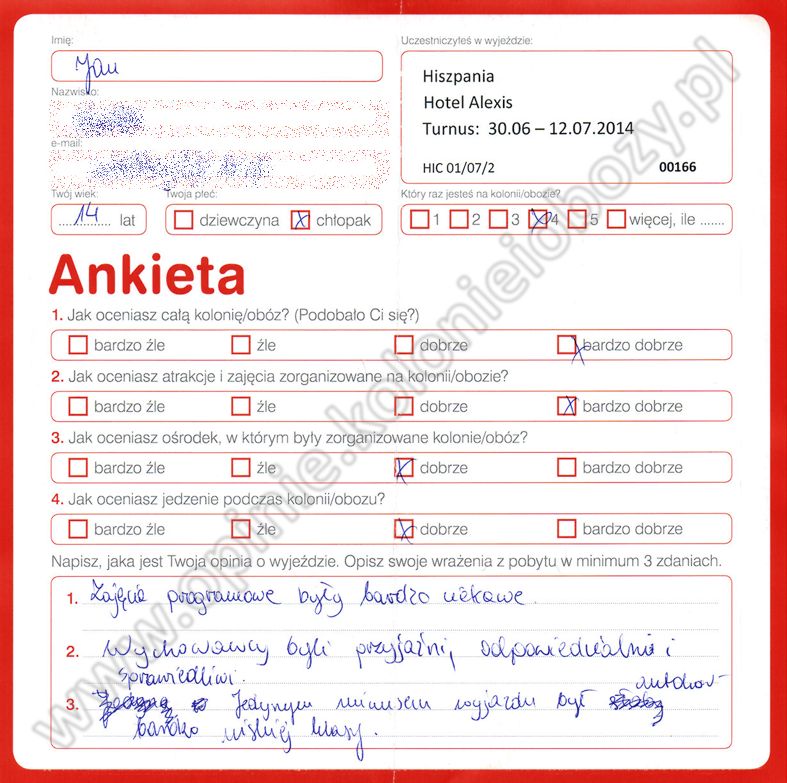 Imię:
Jan
Uczestniczyłeś w wyjeździe:
Hiszpania
Hotel Alexis
Turnus: 30.06 – 12.07.2014
HIC 01/07/2 00166
Nazwisko:
e-mail:
Twój wiek:
14 lat
Twoja płeć:
dziewczyna chłopak
Który raz jesteś na kolonii/obozie?
1 2 3 4 5 więcej, ile .......
Ankieta
1. Jak oceniasz całą kolonię/obóz? (Podobało Ci się?)
bardzo źle źle dobrze bardzo dobrze
2. Jak oceniasz atrakcje i zajęcia zorganizowane na kolonii/obozie?
bardzo źle źle dobrze bardzo dobrze
3. Jak oceniasz ośrodek, w którym były zorganizowane kolonie/obóz?
bardzo źle źle dobrze bardzo dobrze
4. Jak oceniasz jedzenie podczas kolonii/obozu?
bardzo źle źle dobrze bardzo dobrze
Napisz, jaka jest Twoja opinia o wyjeździe. Opisz swoje wrażenia z pobytu w minimum 3 zdaniach.
1. Zajęcia programowe były bardzo ciekawe.
2. Wychowawcy byli przyjaźni, odpowiedzialni i
sprawiedliwi.
3. Jedynym minusem wyjazdu był autokar
bardzo niskiej klasy.
www.opinie.kolonieiobozy.pl